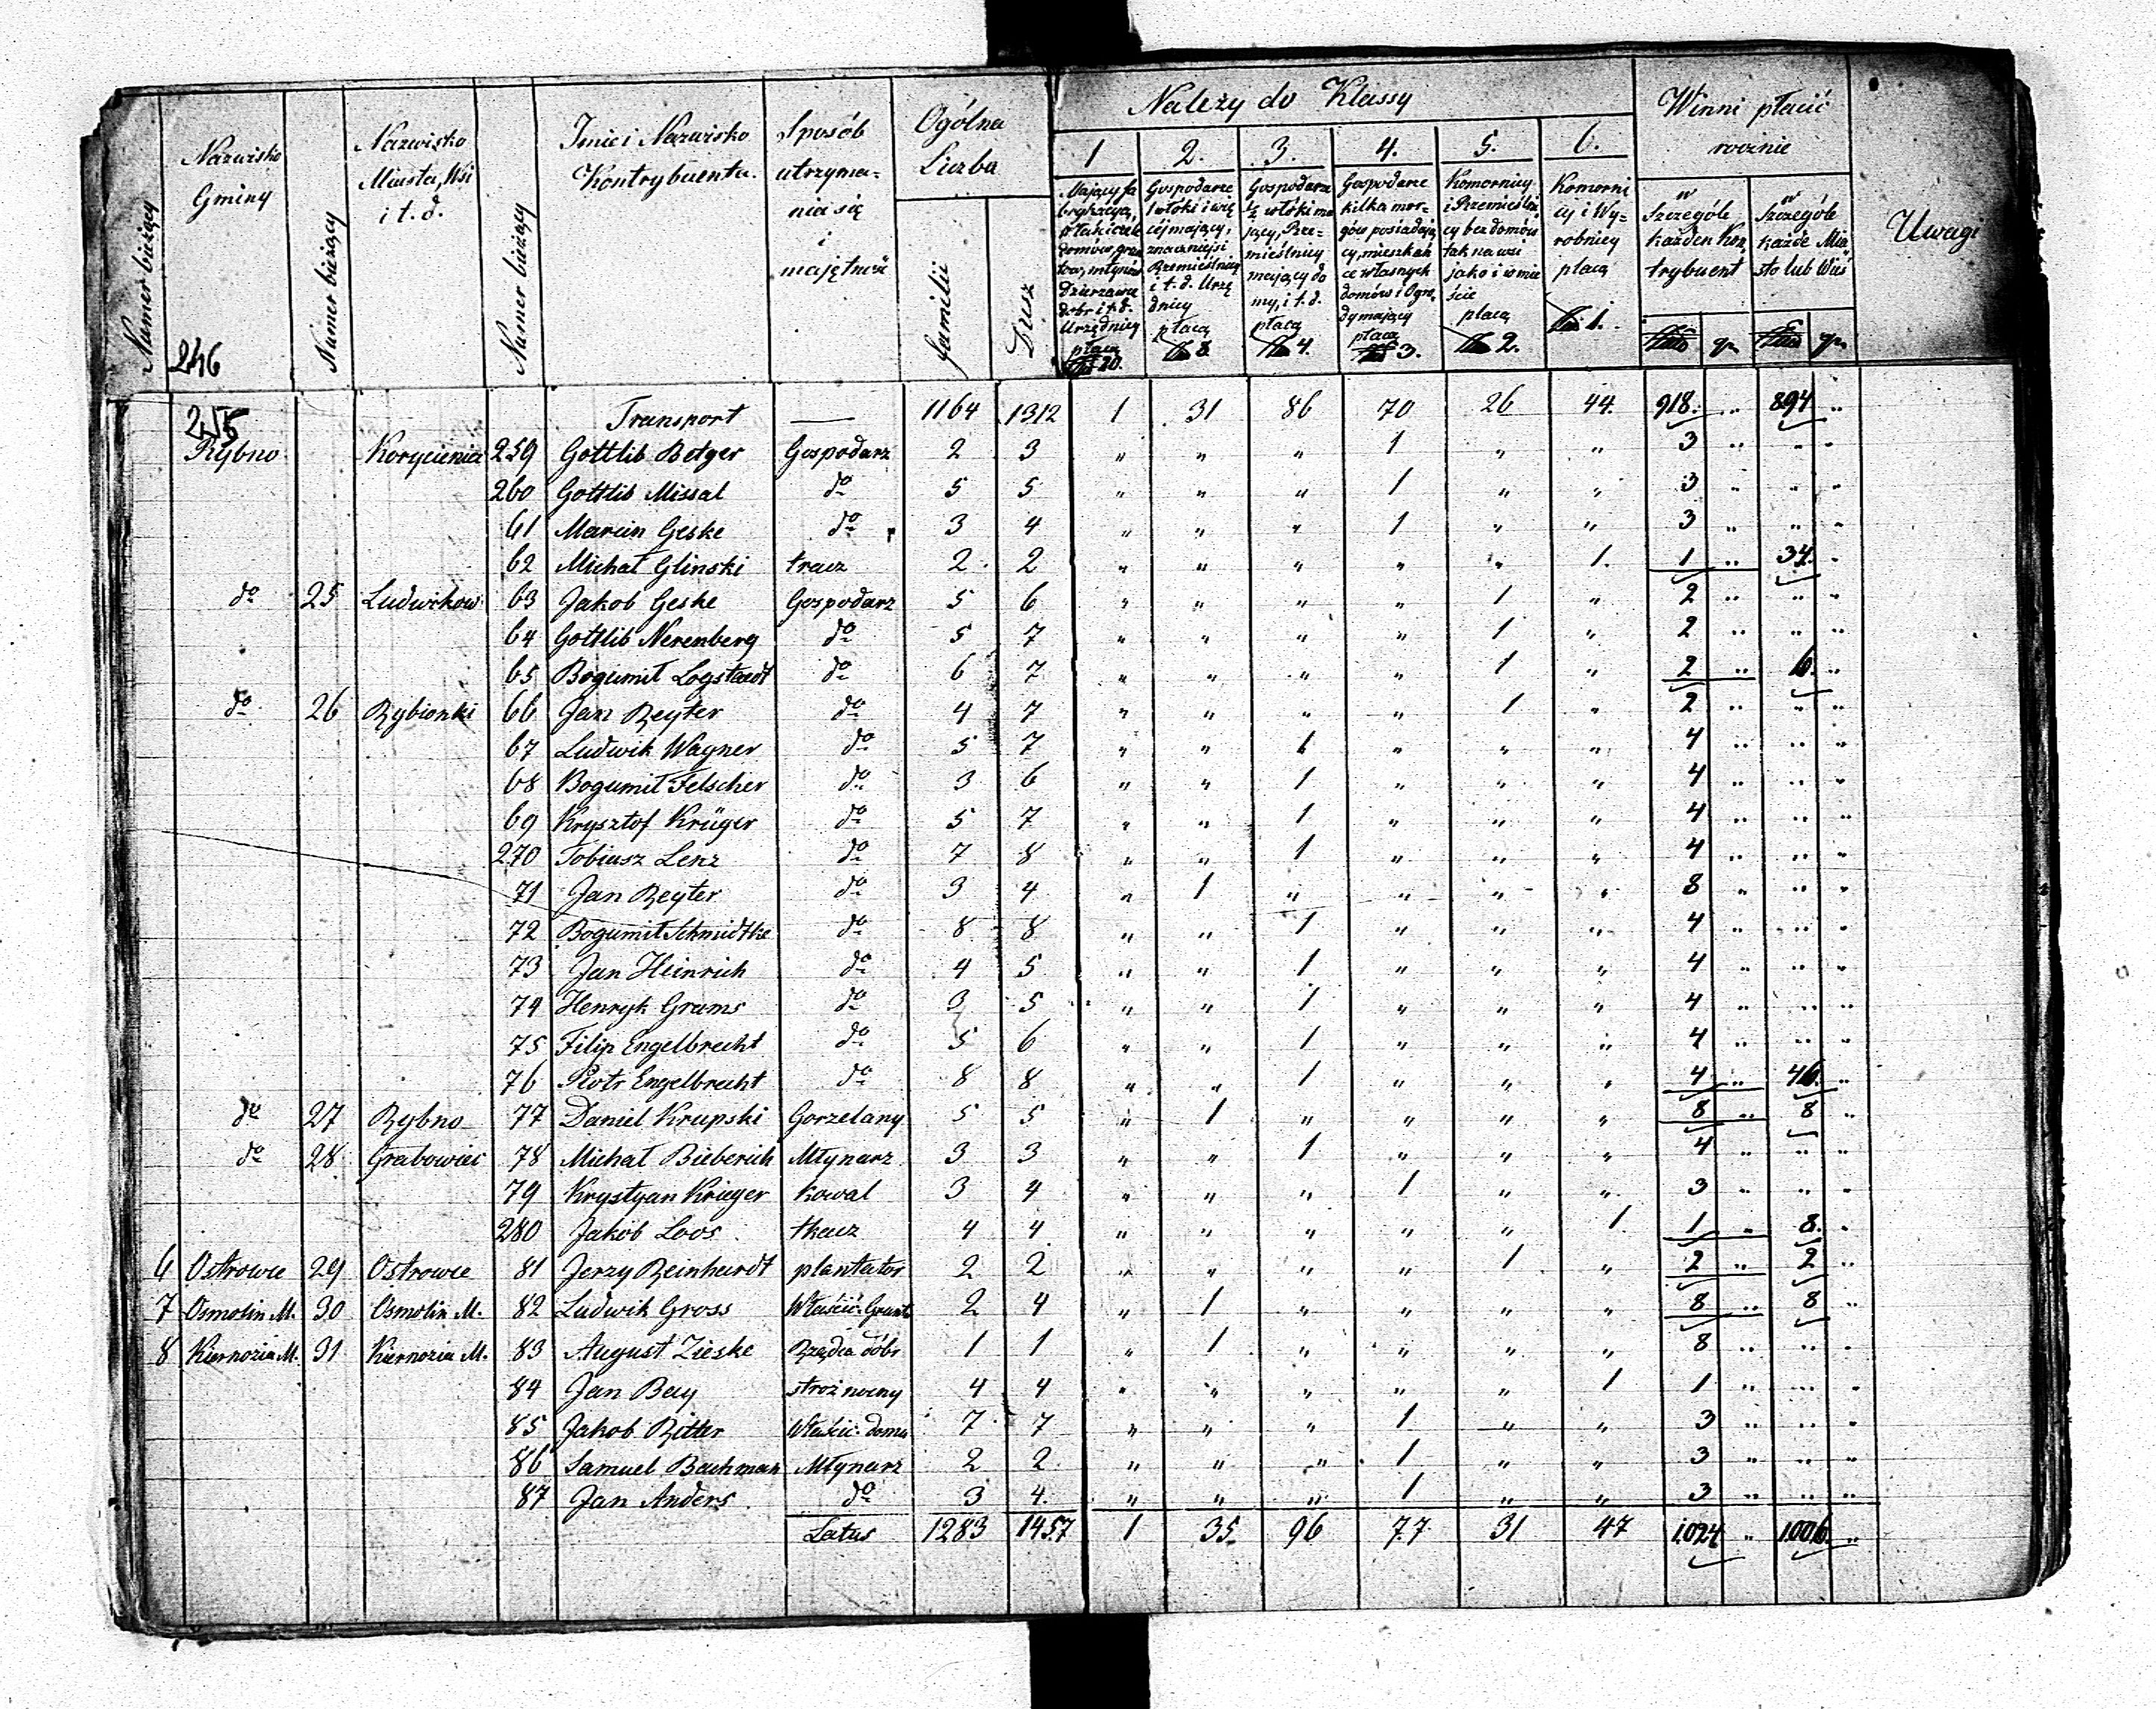 Numer bieżący
Nazwisko Gminy
Numer bieżący
Nazwisko Miasta, Wsi i t. d.
Numer bieżący
Imie i Nazwisko Kontrybuenta.
Sposób utrzymania się i majętność
Ogólna Liczba
familii
Dusz
Należy do Klassy
1
Mający fabrykacyą, Właściciele domów, gruntów, młynów Dzierzawcy dobr i t. d. Urzędnicy płacą 20.
2.
Gospodarze 1 włóki i więcéj mający, znaczniejsi Rzemieślnicy i t. d. Urzędnicy płacą 8
3.
Gospodarze ½ włóki mający, Rzemieślnicy mający domy, i t. d. płacą 4.
4.
Gospodarze kilka morgów posiadający, mieszkańce własnych domów i Ogrody mający płacą 3.
5.
Komornicy i Rzemieślnicy bez domów tak na wsi jako i w mieście płacą 2.
6.
Komornicy i Wyrobnicy płacą 1.
Winni płacić rocznie
w Szczególe każden Kontrybuent
w Szczególe każde Miasto lub Wieś
gr gr
Uwagi
246
255
Transport — 1164 1312 1 31 86 70 26 44. 918. " 894 "
Rybno Korycienice 259 Gottlib Betger Gospodarz 2 3 " " " 1 " " 3 " " "
260 Gottlib Missal do 5 5 " " " 1 " " 3 " " "
61 Marcin Geske do 3 4 " " " 1 " " 3 " " "
62 Michał Glinski tracz 2 2 " " " " " 1. 1 " 34. "
do 25 Ludwikow 63 Jakob Geske Gospodarz 5 6 " " " " 1 " 2 " " "
64 Gottlib Nerenberg do 5 7 " " " " 1 " 2 " " "
65 Bogumił Logstaedt do 6 7 " " " " 1 " 2 " 6. "
do 26 Rybionki 66 Jan Reyter do 4 7 " " " " 1 " 2 " " "
67 Ludwik Wagner do 5 7 " " 1 " " " 4 " " "
68 Bogumił Felscher do 3 6 " " 1 " " " 4 " " "
69 Krysztof Krüger do 5 7 " " 1 " " " 4 " " "
270 Tobiusz Lenz do 7 8 " " 1 " " " 4 " " "
71 Jan Reyter do 3 4 " 1 " " " " 8 " " "
72 Bogumił Schmidtke do 8 8 " " 1 " " " 4 " " "
73 Jan Heinrich do 4 5 " " 1 " " " 4 " " "
74 Henryk Grams do 3 5 " " 1 " " " 4 " " "
75 Filip Engelbrecht do 5 6 " " 1 " " " 4 " " "
76 Piotr Engelbrecht do 8 8 " " 1 " " " 4 " 46. "
do 27 Rybno 77 Daniel Krupski Gorzelany 5 5 " 1 " " " " 8 " 8 "
do 28 Grabowiec 78 Michał Bieberich Młynarz 3 3 " " 1 " " " 4 " " "
79 Krystyan Krieger Kowal 3 4 " " " 1 " " 3 " " "
280 Jakób Loos tkacz 4 4 " " " " " 1 1 " 8. "
6 Ostrowce 29 Ostrowce 81 Jerzy Reinhardt plantator 2 2 " " " " 1 " 2 " 2 "
7 Osmolin M. 30 Osmolin M. 82 Ludwik Gross Właścić. Grunt 2 4 " 1 " " " " 8 " 8 "
8 Kiernozia M. 31 Kiernozia M. 83 August Zieske Rządca dóbr 1 1 " 1 " " " " 8 " " "
84 Jan Bay stroż nocny 4 4 " " " " " 1 1 " " "
85 Jakob Ritter Właścic. domu 7 7 " " " 1 " " 3 " " "
86 Samuel Bachman Młynarz 2 2 " " " 1 " " 3 " " "
87 Jan Anders do 3 4. " " " 1 " " 3 " " "
Latus 1283 1457 1 35. 96 77 31 47 1024 " 1006. "